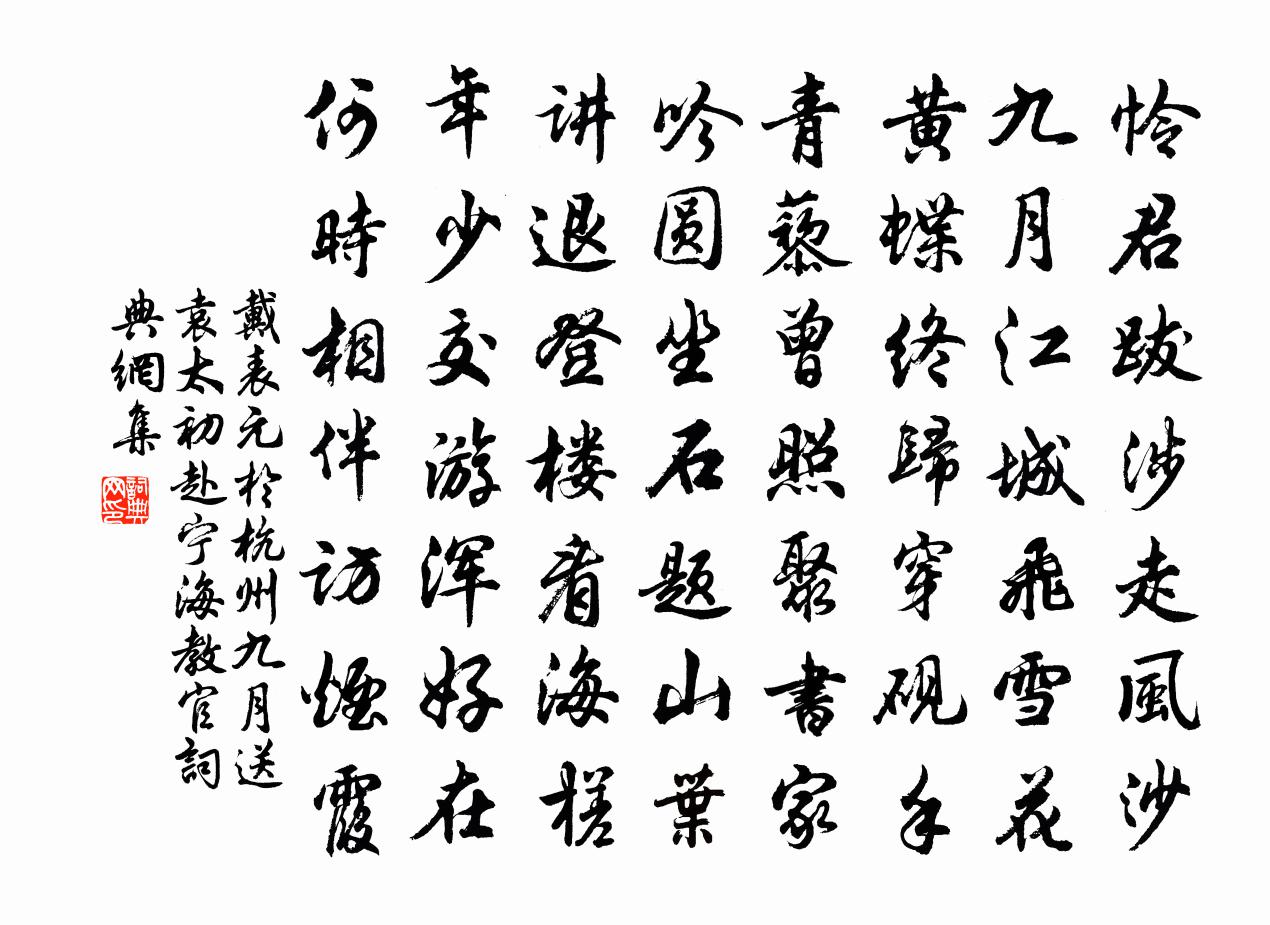 怜君跋涉走風沙
九月江城飛雪花
黄蝶終歸穿砚手
青藜曾照聚書家
吟圆坐石题山葉
讲退登楼看海槎
年少交游浑好在
何時相伴访煙霞
戴表元於杭州九月送
袁太初赴宁海教官詞
典網集
詞典网印